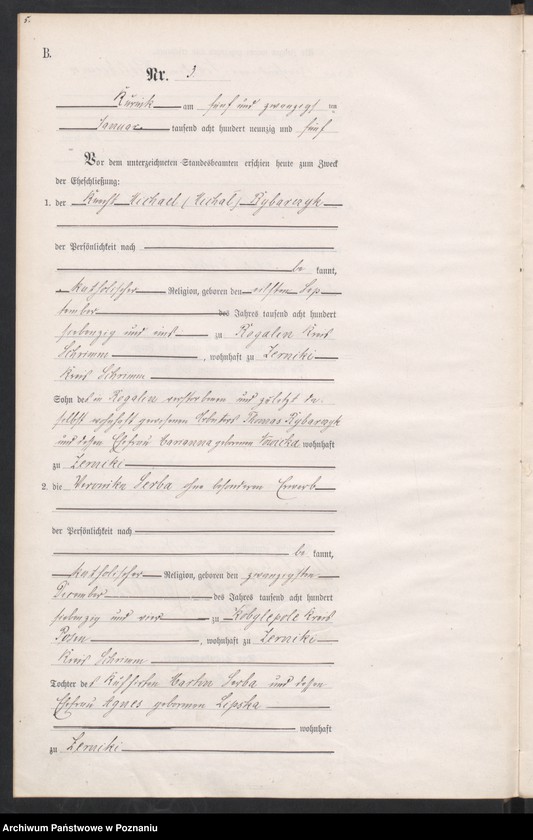 5.
B.
Nr. 3
Kurnik am fünf und zwanzigsten
Januar tausend acht hundert neunzig und fünf
Vor dem unterzeichneten Standesbeamten erschien heute zum Zweck
der Eheschließung:
1. der Knecht Michael (Michał) Rybarczyk
der Persönlichkeit nach
be kannt,
katholischer Religion, geboren den elften Sep
tember des Jahres tausend acht hundert
siebenzig und eins zu Rogalin Kreis
Schrimm, wohnhaft zu Zerniki
Kreis Schrimm
Sohn des in Rogalin verstorbenen und zuletzt da
selbst wohnhaft gewesenen Arbeiters Thomas Rybarczyk
und dessen Ehefrau Marianna geborenen wohnhaft
zu Zerniki
2. die Veronika Serba ohne besonderen Erwerb
der Persönlichkeit nach
be kannt,
katholischer Religion, geboren den zwanzigsten
Dezember des Jahres tausend acht hundert
siebenzig und vier zu Kobylepole Kreis
Posen, wohnhaft zu Zerniki
Kreis Schrimm
Tochter des Kuhhirten Martin Serba und dessen
Ehefrau Agnes geborenen Lipska
wohnhaft
zu Zerniki
Archiwum Państwowe w Poznaniu